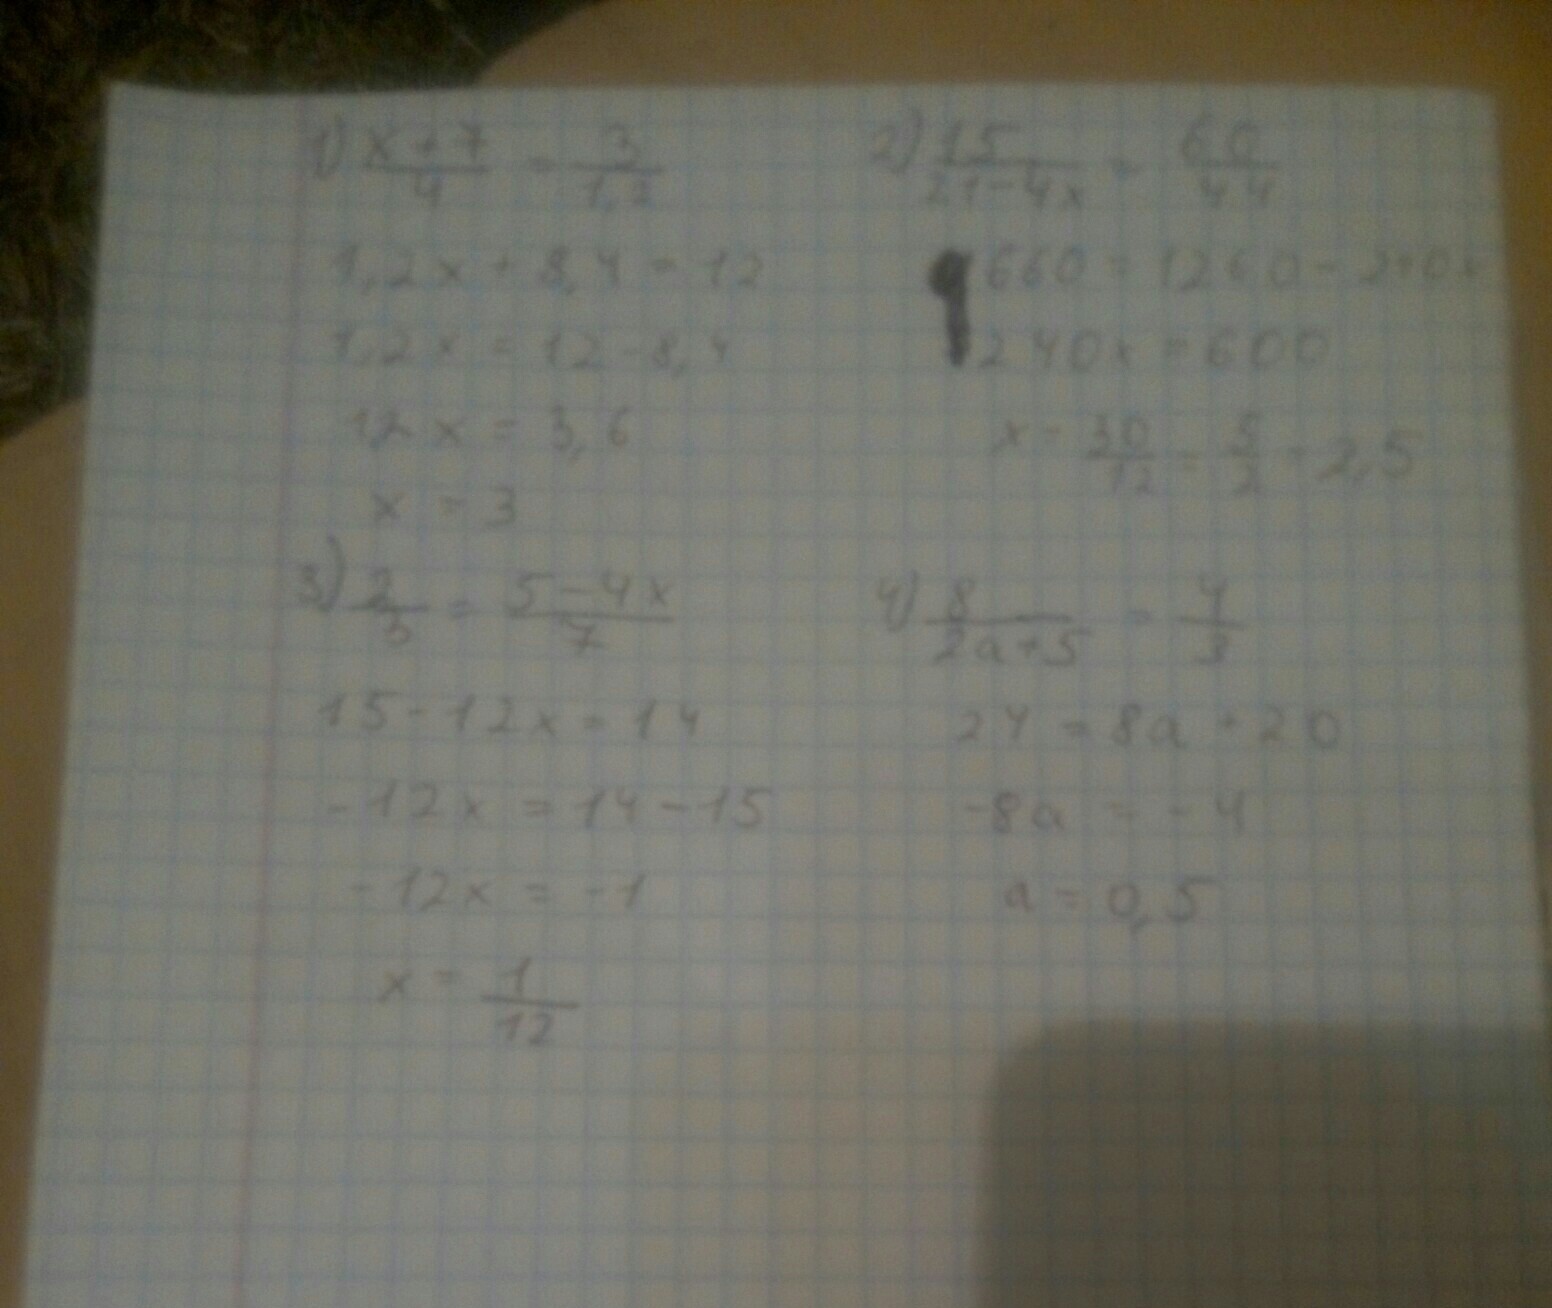 1) x+7/4 = 3/1,2
1,2x + 8,4 = 12
1,2x = 12 - 8,4
12x = 3,6
x = 3
2) 15/21-4x = 60/44
660 = 1260 - 240x
240x = 600
x = 30/12 = 5/2 = 2,5
3) 2/3 = 5-4x/7
15-12x = 14
-12x = 14-15
-12x = -1
x = 1/12
4) 8/2a+5 = 4/3
24 = 8a + 20
-8a = -4
a = 0,5